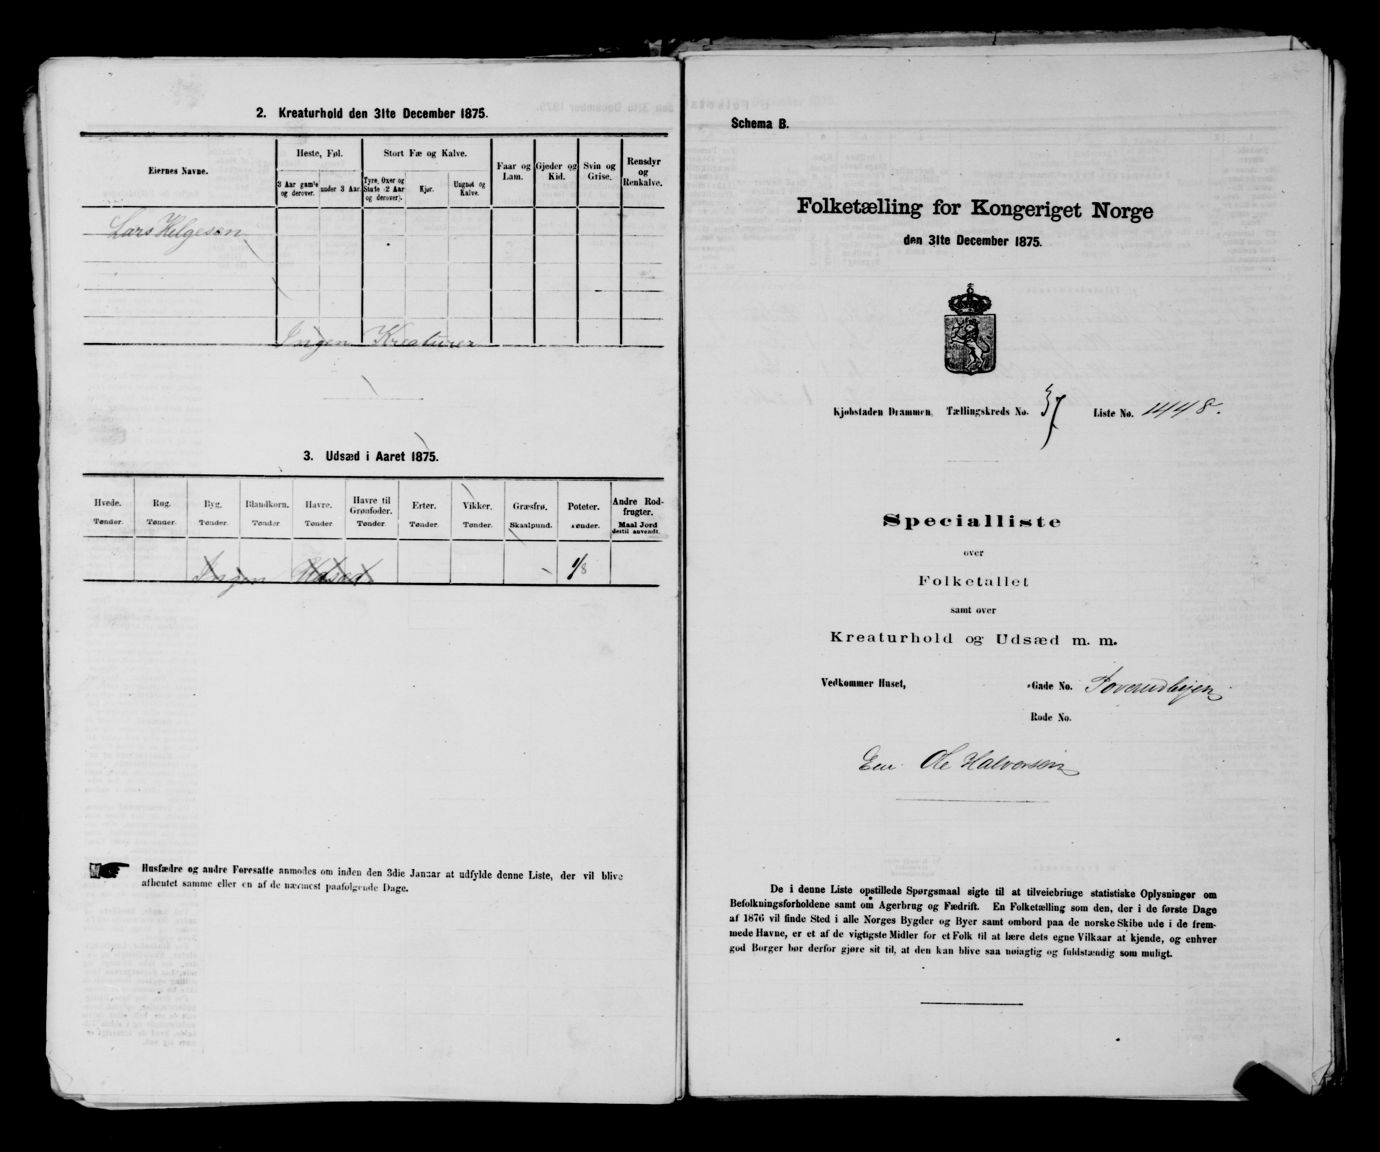 2. Kreaturhold den 31te December 1875.
Eiernes Navne.
Heste, Føl.
Stort Fæ og Kalve.
Faar og Lam.
Gjeder og Kid.
Svin og Grise.
Rensdyr og Renkalve.
3 Aar gamle og derover.
under 3 Aar.
Tyre, Oxer og Stude (2 Aar og derover).
Kjør.
Ungnød og Kalve.
Lars Helgesen
Ingen Kreaturer
3. Udsæd i Aaret 1875.
Hvede. Rug. Byg. Blandkorn. Havre. Havre til Grønfoder. Erter. Vikker. Græsfrø. Poteter. Andre Rodfrugter.
Tønder. Tønder. Tønder. Tønder. Tønder. Tønder. Tønder. Tønder. Skaalpund. Tønder. Maal Jord dertil anvendt.
Ingen Udsæd 1/8
Husfædre og andre Foresatte anmodes om inden den 3die Januar at udfylde denne Liste, der vil blive
afhentet samme eller en af de nærmest paafølgende Dage.
Schema B.
Folketælling for Kongeriget Norge
den 31te December 1875.
Kjøbstaden Drammen, Tællingskreds No. 37 Liste No. 1448.
Specialliste
over
Folketallet
samt over
Kreaturhold og Udsæd m. m.
Vedkommer Huset, Gade No.
Rode No.
Eier Ole Halvorsen
De i denne Liste opstillede Spørgsmaal sigte til at tilveiebringe statistiske Oplysninger om
Befolkningsforholdene samt om Agerbrug og Fædrift. En Folketælling som den, der i de første Dage
af 1876 vil finde Sted i alle Norges Bygder og Byer samt ombord paa de norske Skibe ude i de frem-
mede Havne, er et af de vigtigste Midler for et Folk til at lære dets egne Vilkaar at kjende, og enhver
god Borger bør derfor gjøre sit til, at den kan blive saa nøiagtig og fuldstændig som muligt.